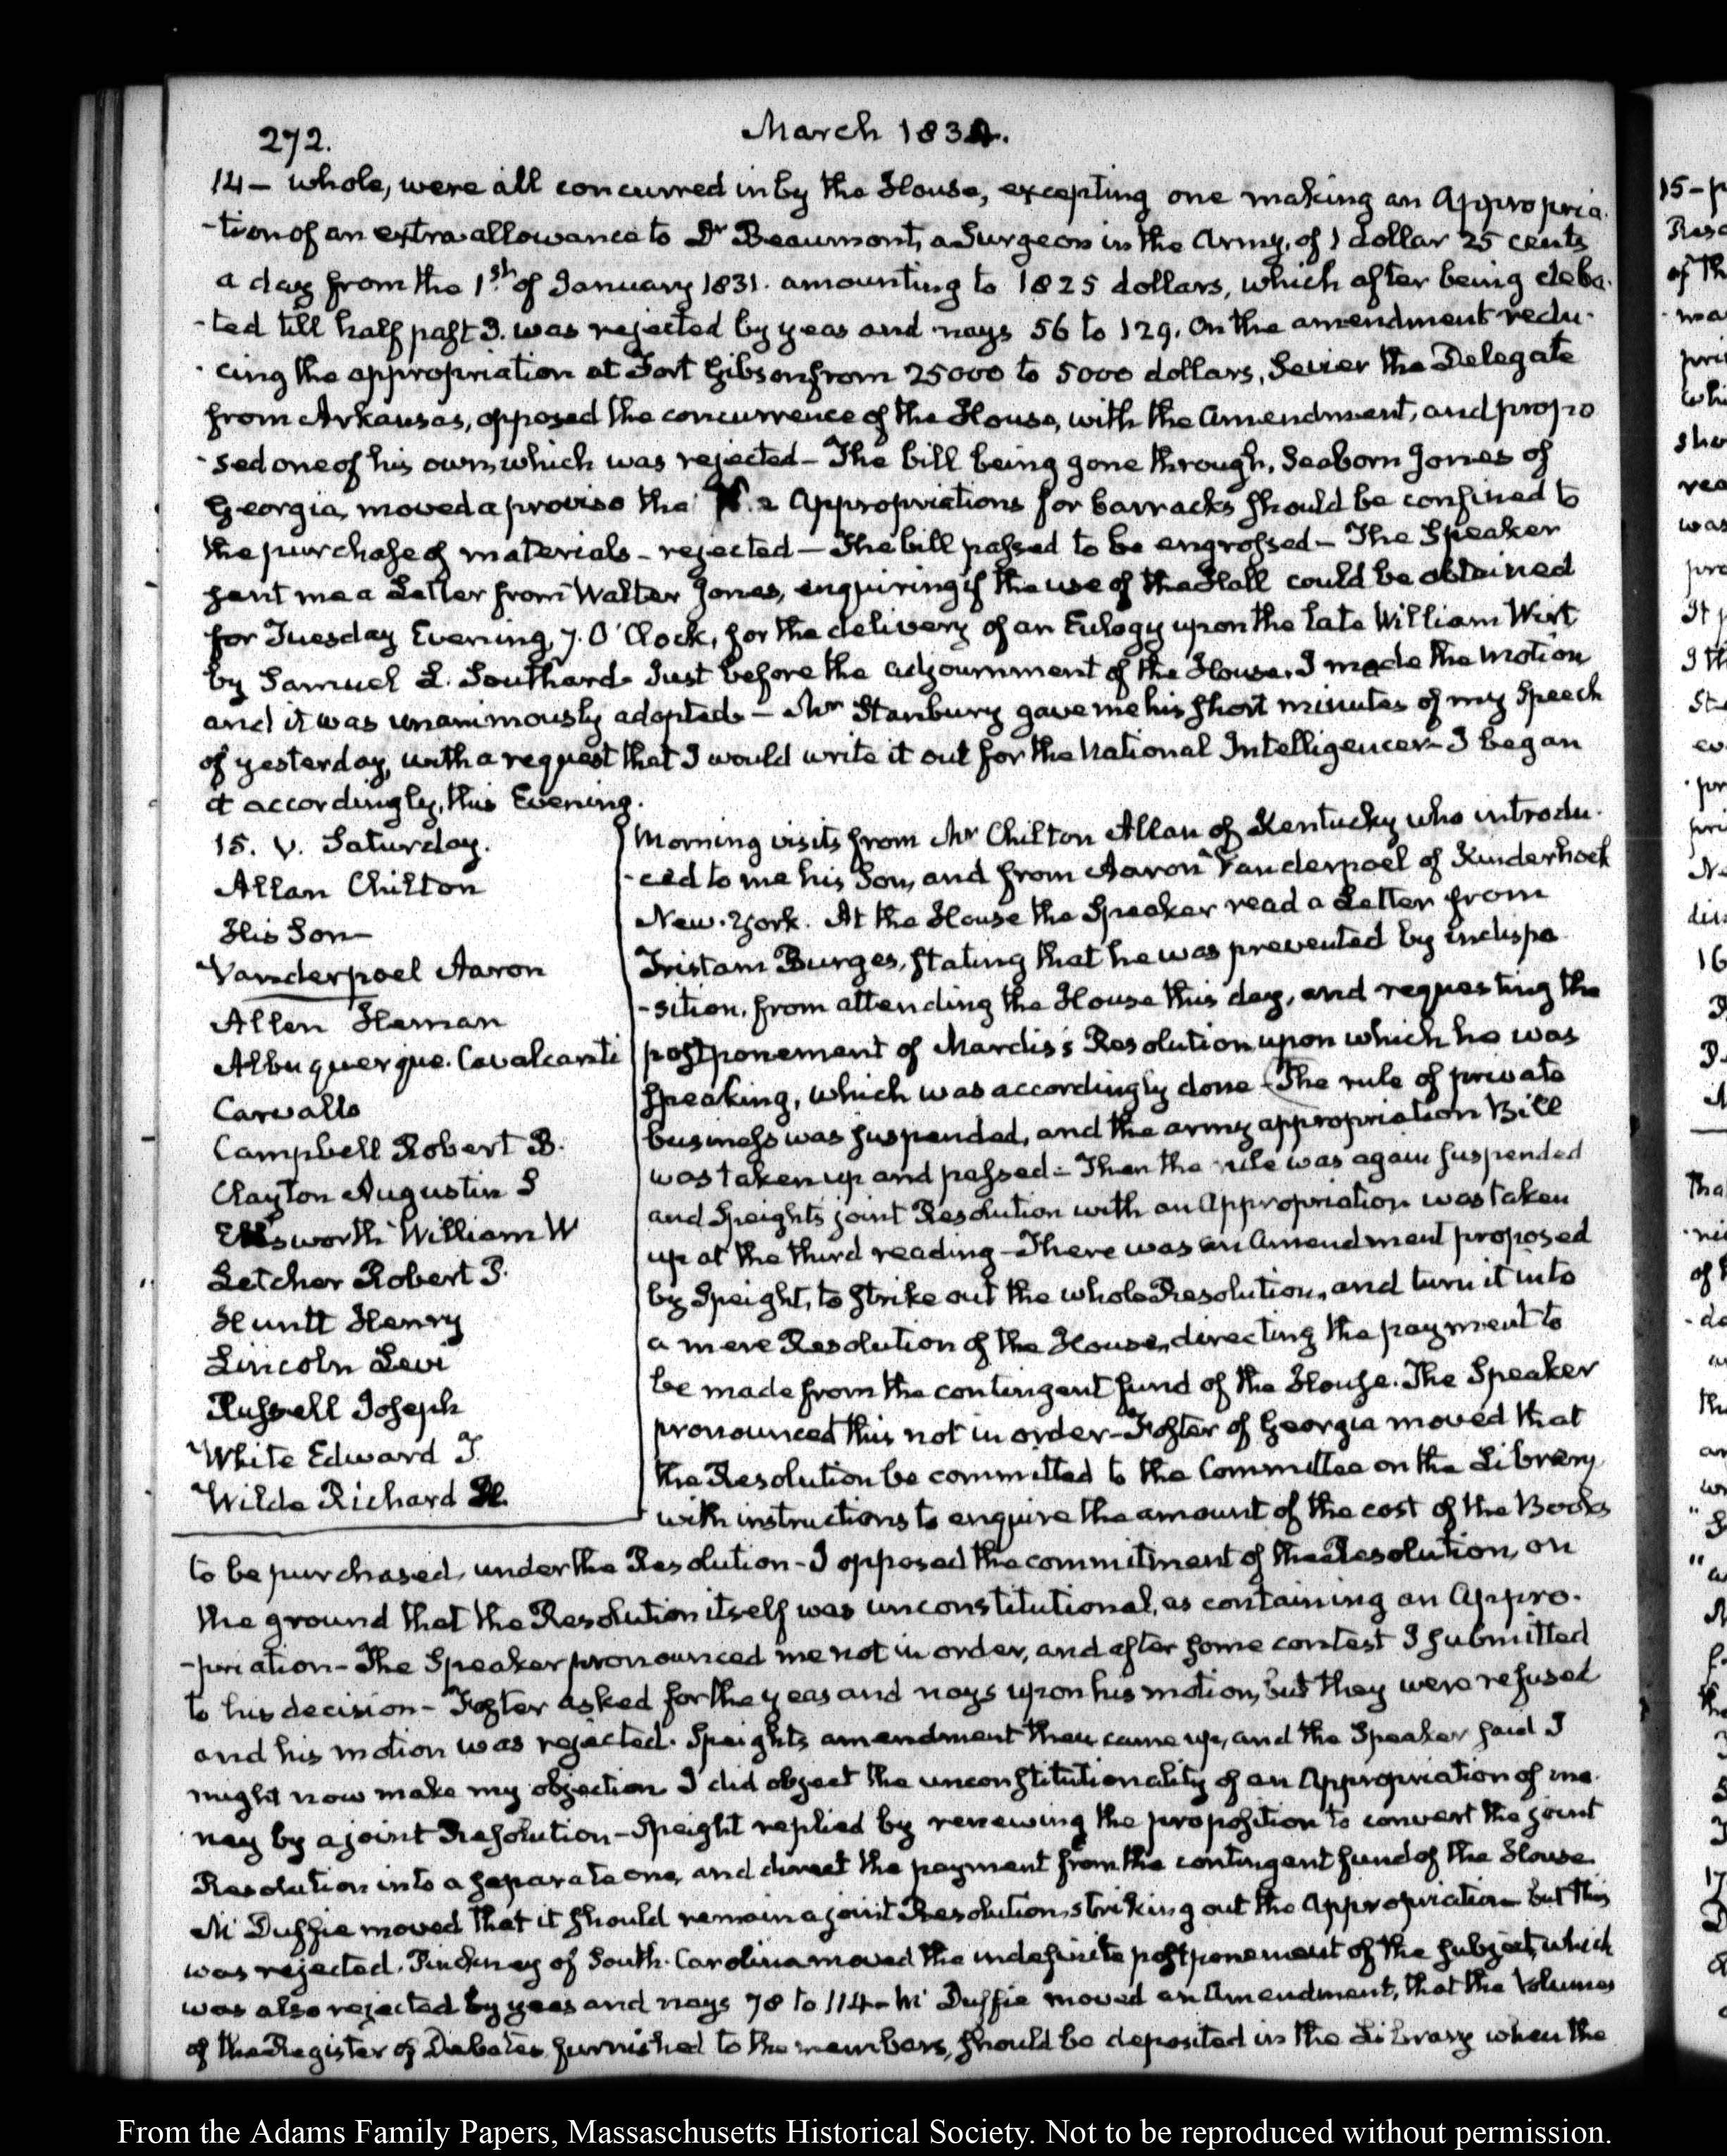 272.
March 1834.
14 – whole, were all concurred in by the House, excepting one making an Appropria-
-tion of an extra allowance to Dr Beaumont, a Surgeon in the Army, of 1 dollar 25 cents
a day from the 1st of January 1831. amounting to 1825 dollars, which after being deba-
-ted till half past 3. was rejected by yeas and nays 56 to 129. On the amendment redu-
-cing the appropriation at Fort Gibson from 25000 to 5000 dollars, Sevier the Delegate
from Arkansas, opposed the concurrence of the House, with the Amendment, and propo
-sed one of his own, which was rejected – The bill being gone through, Seaborn Jones of
Georgia, moved a proviso tha the Appropriations for barracks should be confined to
the purchase of materials – rejected – The bill passed to be engrossed – The Speaker
sent me a Letter from Walter Jones, enquiring if the use of the Hall could be obtained
for Tuesday Evening, 7. O'Clock, for the delivery of an Eulogy upon the late William Wirt
by Samuel L. Southard. Just before the adjournment of the House, I made the motion
and it was unanimously adopted – Mr Stanbury gave me his short minutes of my Speech
of yesterday, with a request that I would write it out for the National Intelligencer – I began
it accordingly, this Evening.
15. V. Saturday.
Allan Chilton
His Son –
Vanderpoel Aaron
Allen Heman
Albuquerque. Cavalcanti
Carvallo
Campbell Robert B.
Clayton Augustin S
Ellsworth William W
Letcher Robert P.
Huntt Henry
Lincoln Levi
Russell Joseph
White Edward J.
Wilde Richard H.
Morning visits from Mr Chilton Allan of Kentucky who introdu-
-ced to me his Son, and from Aaron Vanderpoel of Kinderhook
New-York. At the House the Speaker read a Letter from
Tristam Burges, stating that he was prevented by indispo
-sition, from attending the House this day, and requesting the
postponement of Mardis's Resolution upon which he was
speaking, which was accordingly done – The rule of private
business was suspended, and the army appropriation Bill
was taken up and passed – Then the rule was again suspended
and Speight's joint Resolution with an Appropriation was taken
up at the third reading – There was an Amendment proposed
by Speight, to strike out the whole Resolution, and turn it into
a mere Resolution of the House, directing the payment to
be made from the contingent fund of the House. The Speaker
pronounced this not in order – Foster of Georgia moved that
the Resolution be committed to the Committee on the Library
with instructions to enquire the amount of the cost of the Books
to be purchased, under the Resolution – I opposed the commitment of the Resolution, on
the ground that the Resolution itself was unconstitutional, as containing an Appro-
-priation – The Speaker pronounced me not in order, and after some contest I submitted
to his decision – Foster asked for the yeas and nays upon his motion, but they were refused
and his motion was rejected. Speight's amendment then came up, and the Speaker said I
might now make my objection. I did object the unconstitutionality of an Appropriation of mo-
ney by a joint Resolution – Speight replied by renewing the proposition to convert the joint
Resolution into a separate one, and direct the payment from the contingent fund of the House
McDuffie moved that it should remain a joint Resolution, striking out the Appropriation but this
was rejected. Pinckney of South-Carolina moved the indefinite postponement of the subject, which
was also rejected by yeas and nays 78 to 114 – McDuffie moved an Amendment, that the Volumes
of the Register of Debates furnished to the members, should be deposited in the Library when the
From the Adams Family Papers, Massachusetts Historical Society. Not to be reproduced without permission.